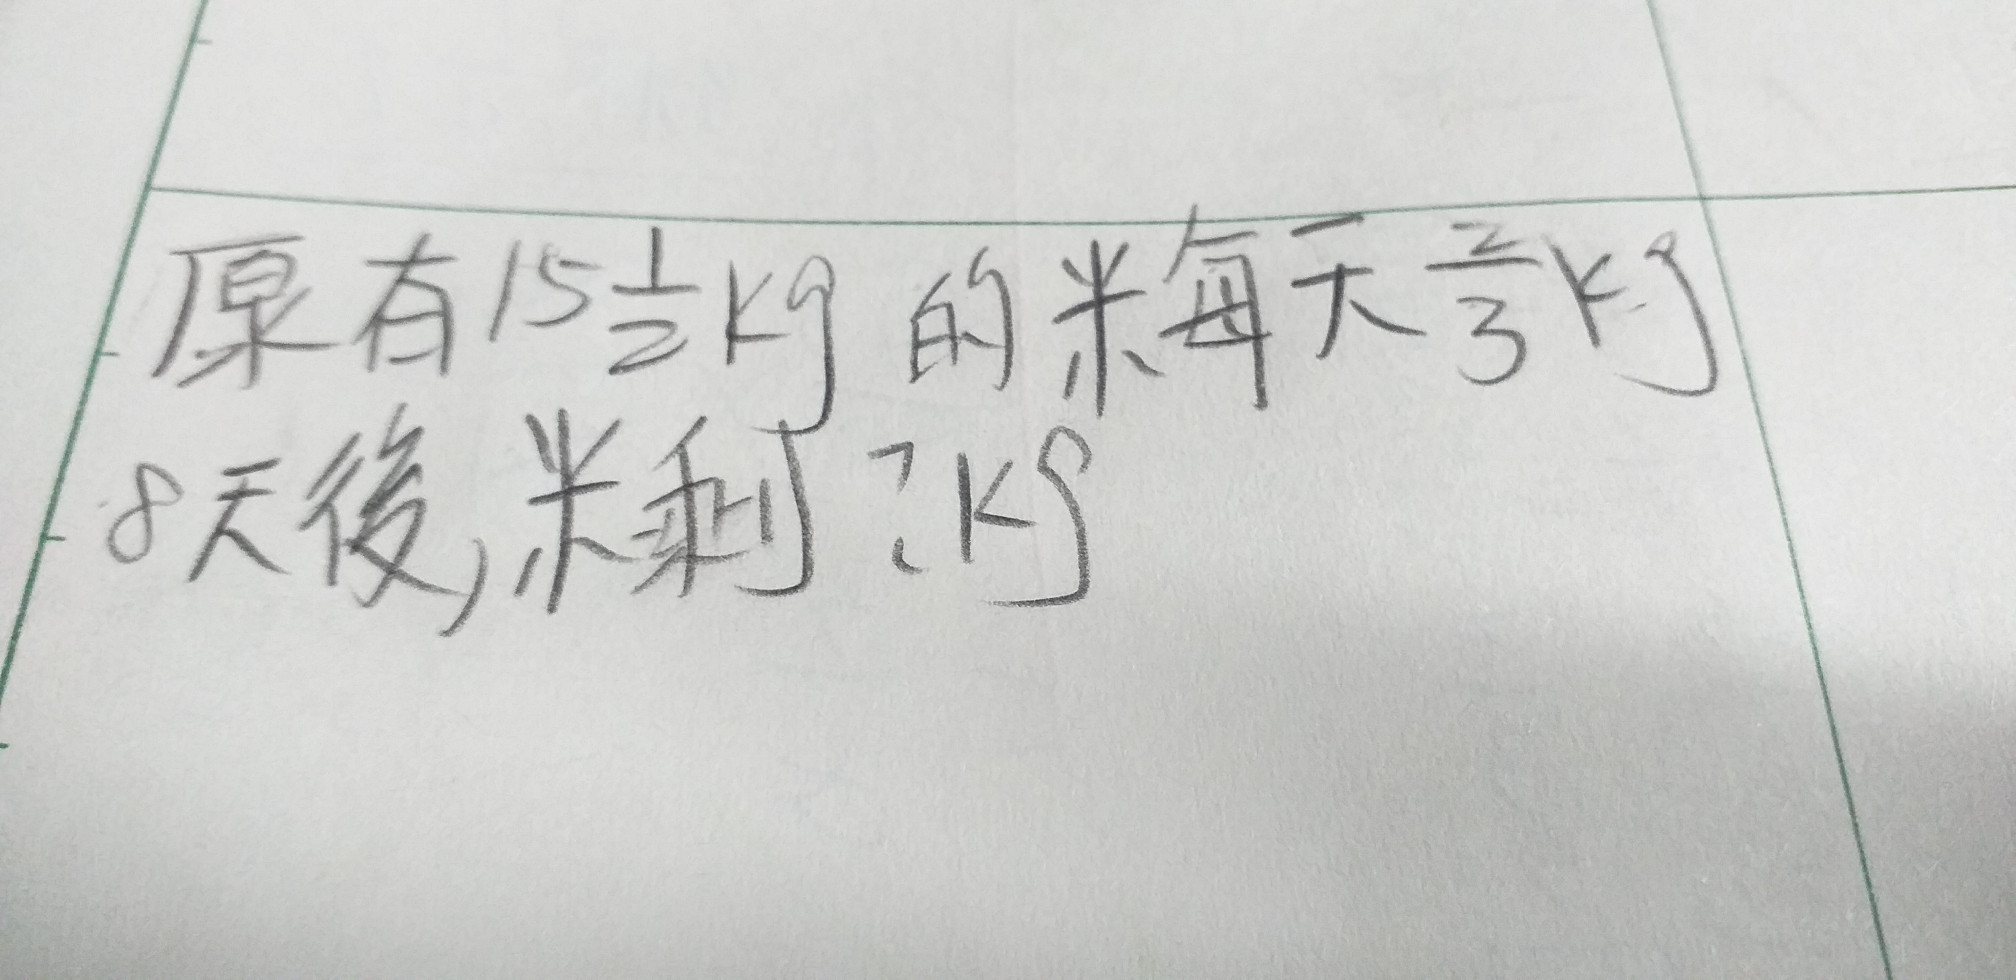 原有15 1/2 kg 的米每天 2/3 kg
8天後,米剩?kg